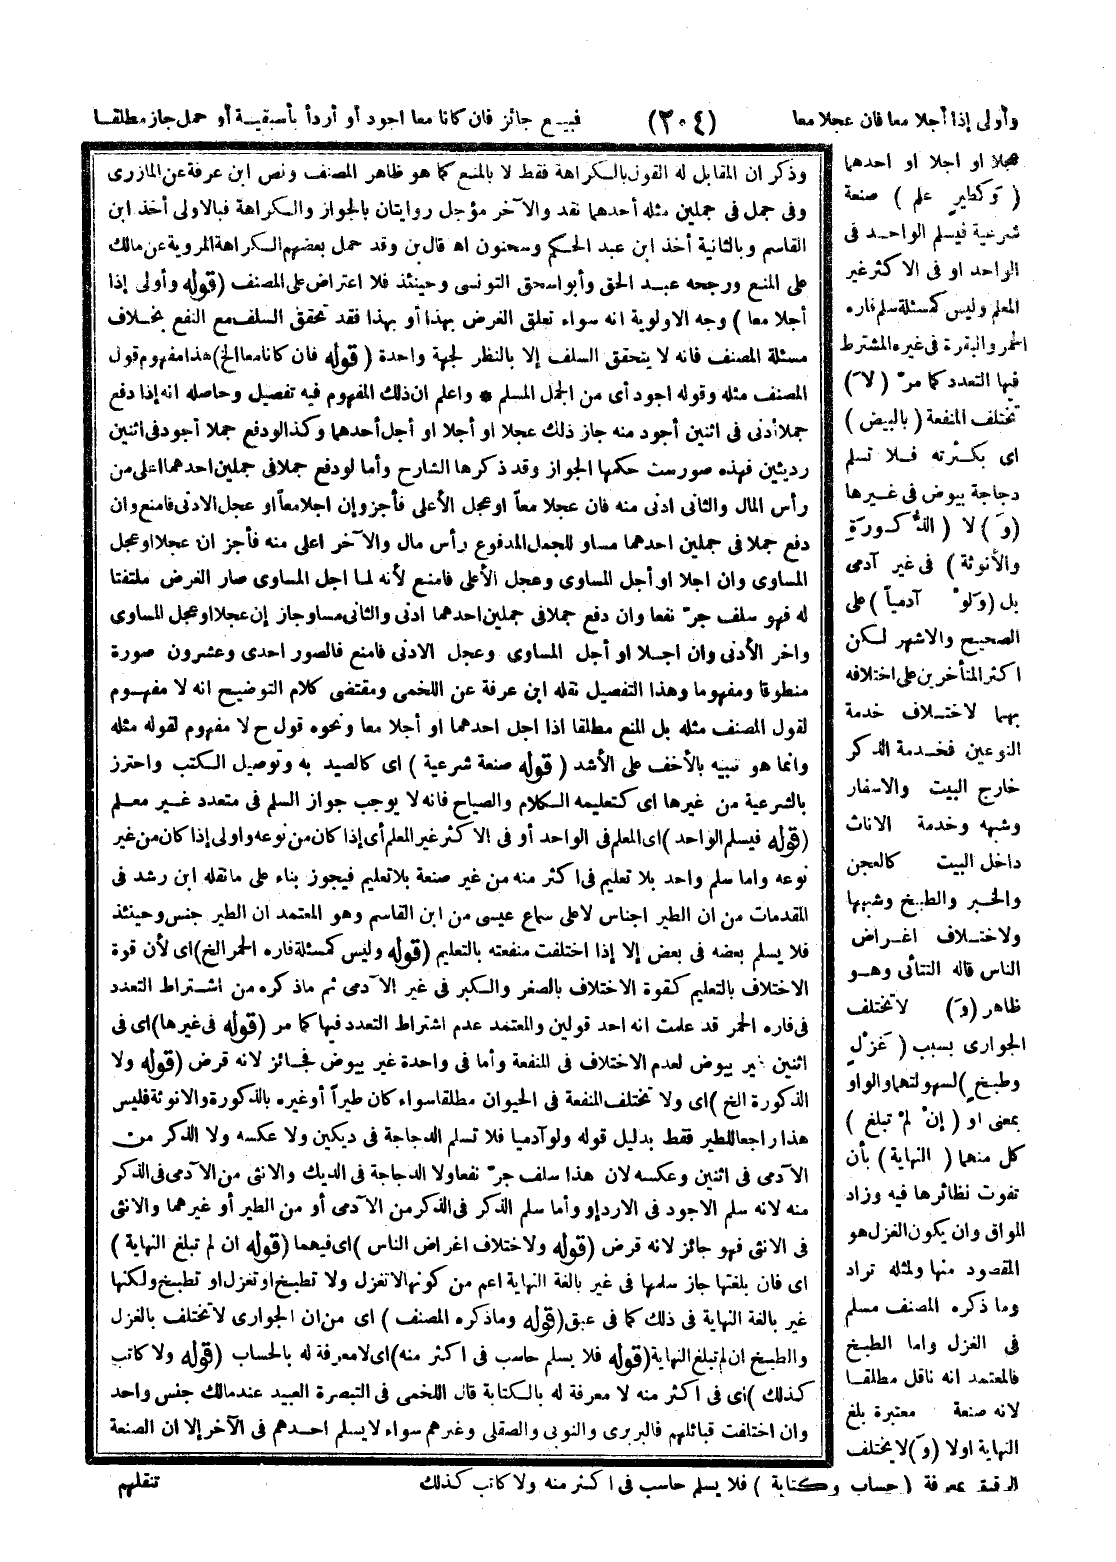 وأولى إذا أجلا معا فان عجلا معا (٢٠٤) فبيع جائز فان كانا معا اجود أو أردأ بأسبقية أو حمل جاز مطلقا
عجلا او اجلا او احدهما
( وَكطيرِ علم ) صنعة
شرعية فيسلم الواحد فى
الواحد او فى الاكثر غير
المعلم وليس كمسئلة سلم فاره
الحمر والبقرة فى غيره المشترط
فيها التعدد كما مرّ ( لاَ )
تختلف المنفعة ( بالبيض )
اى بكثرته فلا تسلم
دجاجة بيوض فى غيرها
(وَ) لا ( الذُّكورةِ
والأنوثة ) فى غير آدمى
بل (وَلوْ آدمياً ) على
الصحيح والاشهر لكن
اكثر المتأخرين على اختلافه
بهما لاختلاف خدمة
النوعين فخدمة الذكر
خارج البيت والاسفار
وشبهه وخدمة الاناث
داخل البيت كالعجن
والخبز والطبخ وشبهها
ولاختلاف اغراض
الناس قاله التتائى وهو
ظاهر (وَ) لا تختلف
الجوارى بسبب ( غزْلٍ
وطبخٍ ) لسهولتهما والواو
بمعنى او ( إنْ لمْ تبلغ )
كل منهما ( النهاية ) بأن
تفوت نظائرها فيه وزاد
المواق وان يكون الغزل هو
المقصود منها ولمثله تراد
وما ذكره المصنف مسلم
فى الغزل واما الطبخ
فالمعتمد انه ناقل مطلقا
لانه صنعة معتبرة بلغ
النهاية اولا (وَ) لا يختلف
الرقيق بمعرفة ( حساب وكتابة ) فلا يسلم حاسب فى اكثر منه ولا كاتب كذلك
وذكر ان المقابل له القول بالكراهة فقط لا بالمنع كما هو ظاهر المصنف ونص ابن عرفة عن المازرى
وفى جمل فى جملين مثله أحدهما نقد والآخر مؤجل روايتان بالجواز والكراهة فبالاولى أخذ ابن
القاسم وبالثانية أخذ ابن عبد الحكم وسحنون اه قال بن وقد حمل بعضهم الكراهة المروية عن مالك
على المنع ورجحه عبد الحق وأبو اسحق التونسى وحينئذ فلا اعتراض على المصنف (قوله وأولى إذا
أجلا معا ) وجه الاولوية انه سواء تعلق الغرض بهذا أو بهذا فقد تحقق السلف مع النفع بخلاف
مسئلة المصنف فانه لا يتحقق السلف إلا بالنظر لجهة واحدة ( قوله فان كانا معا الخ) هذا مفهوم قول
المصنف مثله وقوله اجود أى من الجمل المسلم * واعلم ان ذلك المفهوم فيه تفصيل وحاصله انه إذا دفع
جملا أدنى فى اثنين أجود منه جاز ذلك عجلا او أجلا او أجل أحدهما وكذا لو دفع جملا أجود فى اثنين
رديئين فهذه صور ست حكمها الجواز وقد ذكرها الشارح وأما لو دفع جملا فى جملين احدهما اعلى من
رأس المال والثانى ادنى منه فان عجلا معاً او عجل الأعلى فأجز وإن اجلا معاً او عجل الادنى فامنع وان
دفع جملا فى جملين احدهما مساو للجمل المدفوع رأس مال والآخر اعلى منه فأجز ان عجلا او عجل
المساوى وان اجلا او أجل المساوى وعجل الأعلى فامنع لأنه لما اجل المساوى صار الغرض ملتفتا
له فهو سلف جرّ نفعا وان دفع جملا فى جملين احدهما ادنى والثانى مساو جاز إن عجلا او عجل المساوى
واخر الأدنى وان اجلا او أجل المساوى وعجل الادنى فامنع فالصور احدى وعشرون صورة
منطوقا ومفهوما وهذا التفصيل نقله ابن عرفة عن اللخمى ومقتضى كلام التوضيح انه لا مفهوم
لقول المصنف مثله بل المنع مطلقا اذا اجل احدهما او أجلا معا ونحوه قول ح لا مفهوم لقوله مثله
وانما هو تنبيه بالأخف على الأشد ( قوله صنعة شرعية ) اى كالصيد به وتوصيل الكتب واحترز
بالشرعية من غيرها اى كتعليمه الكلام والصياح فانه لا يوجب جواز السلم فى متعدد غير معلم
(قوله فيسلم الواحد )اى المعلم فى الواحد أو فى الاكثر غير المعلم أى إذا كان من نوعه واولى إذا كان من غير
نوعه واما سلم واحد بلا تعليم فى اكثر منه من غير صنعة بلا تعليم فيجوز بناء على ما نقله ابن رشد فى
المقدمات من ان الطير اجناس لا على سماع عيسى من ابن القاسم وهو المعتمد ان الطير جنس وحينئذ
فلا يسلم بعضه فى بعض إلا إذا اختلفت منفعته بالتعليم (قوله وليس كمسئلة فاره الحمر الخ)اى لأن قوة
الاختلاف بالتعليم كقوة الاختلاف بالصغر والكبر فى غير الآدمى ثم ماذكره من اشتراط التعدد
فى فاره الحمر قد علمت انه احد قولين والمعتمد عدم اشتراط التعدد فيها كما مر (قوله فى غيرها)اى فى
اثنين غير بيوض لعدم الاختلاف فى المنفعة وأما فى واحدة غير بيوض فجائز لانه قرض (قوله ولا
الذكورة الخ )اى ولا تختلف المنفعة فى الحيوان مطلقا سواء كان طيراً أو غيره بالذكورة والانوثة فليس
هذا راجعا للطير فقط بدليل قوله ولو آدميا فلا تسلم الدجاجة فى ديكين ولا عكسه ولا الذكر من
الآدمى فى اثنين وعكسه لان هذا سلف جرّ نفعا ولا الدجاجة فى الديك والانثى من الآدمى فى الذكر
منه لانه سلم الاجود فى الاردإ وأما سلم الذكر فى الذكر من الآدمى أو من الطير أو غيرهما والانثى
فى الانثى فهو جائز لانه قرض (قوله ولاختلاف اغراض الناس )اى فيهما (قوله ان لم تبلغ النهاية )
اى فان بلغتها جاز سلمها فى غير بالغة النهاية اعم من كونها لا تغزل ولا تطبخ او تغزل او تطبخ ولكنها
غير بالغة النهاية فى ذلك كما فى عبق (قوله وما ذكره المصنف ) اى من ان الجوارى لا تختلف بالغزل
والطبخ ان لم تبلغ النهاية (قوله فلا يسلم حاسب فى اكثر منه)اى لا معرفة له بالحساب (قوله ولا كاتب
كذلك )اى فى اكثر منه لا معرفة له بالكتابة قال اللخمى فى التبصرة العبيد عند مالك جنس واحد
وان اختلفت قبائلهم فالبربرى والنوبى والصقلى وغيرهم سواء لا يسلم احدهم فى الآخر إلا ان الصنعة
تنقلهم